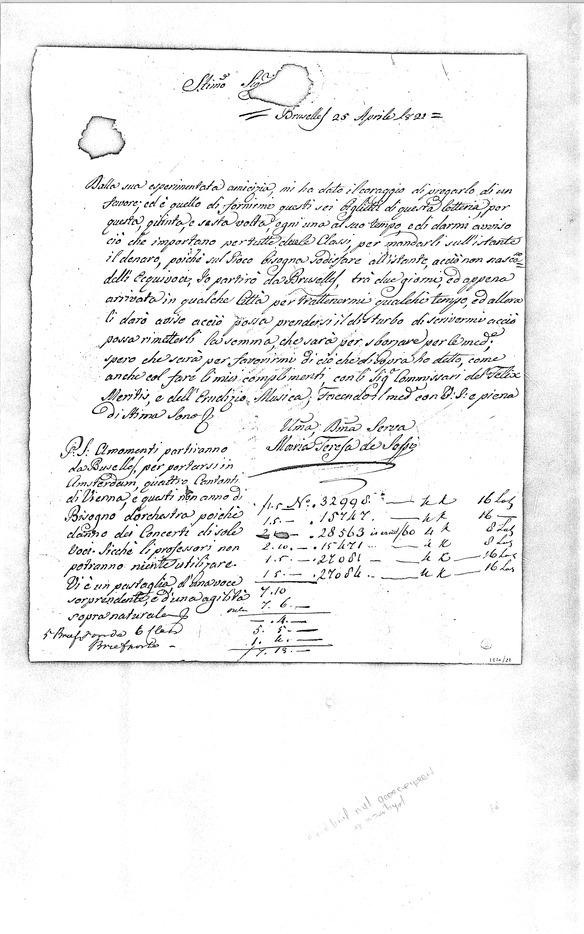 Stimo Sigr
Brusellj 25 Aprile 1821
Dalla sua esperimentata amicizia, mi ha dato il coraggio di pregarlo di un
favore; ed è quello di fornirmi questi sei biglietti di questa lotteria, per
questa, quinta, e sesta volta, ogni una al suo tempo, e di darmi avviso
ciò che importano per tutte Classi, per mandarli sull'istante
il denaro, poiché sul Gioco bisogna sodisfare all'istante, acciò non nasca
delli Equivoci. Io partirò da Brusellj, trà due giorni, ed appena
arrivata in qualche Città per trattenermi qualche tempo, ed allora
li darò aviso acciò possa prendersi il disturbo di scrivermi acciò
possa rimetterli la somma, che sarà per sborsare per le med:
spero che sarà per favorirmi di ciò che di sopra ho detto, come
anche col fare li miei complimenti con li Sigri Commissari del Felix
Meritis, e dell'Erudizio Musica; facendo il med con V:S: e piena
di Stima Sono
Uma, Dma Serva
Maria Teresa de Sessi
P:S: A momenti partiranno
da Buselles, per portarsi in
Amsterdam, quattro Cantanti
di Vienna, e questi non anno di
Bisogno d'orchestra poiche
danno dei Concerti di sole
voci. Sicche li professori non
potranno niente utilizare.
Vi è un pastaglia, d'una voce
sorprendente, e d'una agilità
sopranaturale
1.5 — No. 32998. — 4 K 16
1.5. — . 15747. — 4 K 16 —
. 28563 4 K 8
2.10. — . 15471 — 4 K 8
1.5. — . 27081 — 4 K — 16
1.5. — . 27084 — 4 K — 16
7.10
7. 6. —
— . 4. —
5. 5. —
1. 4. —
7. 13. —
5 Brief 6
Briefporto —